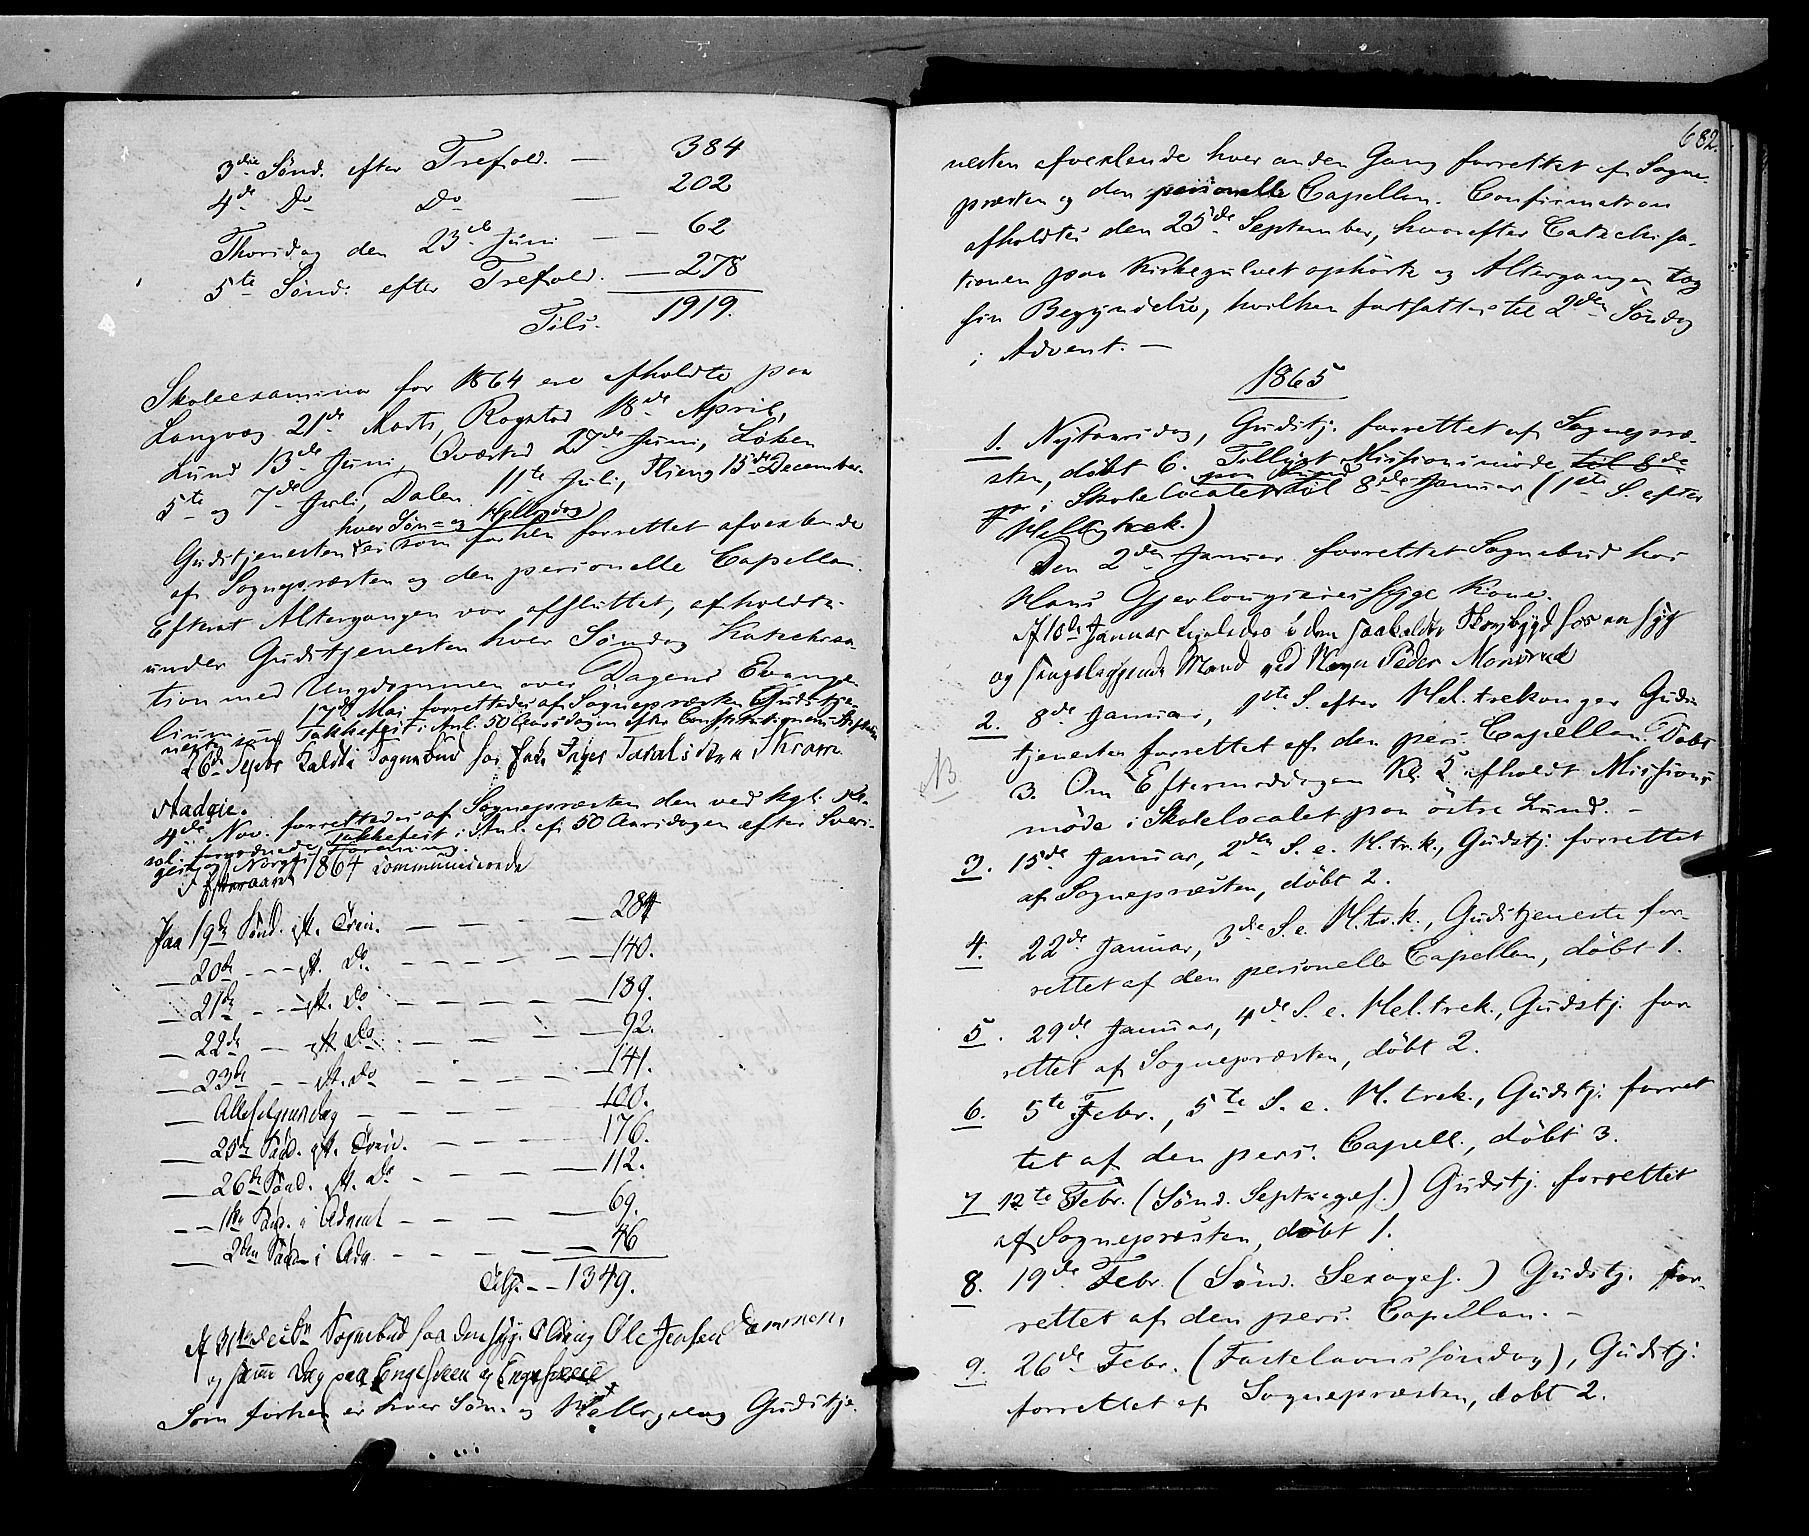 3die Sønd. efter Trefold. — 384
4de Do Do — 202
Thorsdag den 23de Juni — — 62
5te Sønd. efter Trefold. — 278
Tils. 1919.
Skoleexamina for 1864 ere afholdte paa
Langvag 21de Marts, Rogstad 18de April,
Lund 13de Juni, Qværstad 27de Juni, Løken
5te og 7de Juli, Dalen 11te Juli, 15de December.
hver Søn- og Helligdag
Gudstjenesten er som forhen forrettet afvexlende
af Sognepræsten og den personelle Capellan.
Efterat Altergangen var afsluttet, afholdtes
under Gudstjenesten hver Søndag Katechesa-
tion med Ungdommen over Dagens Evange-
lium.
17de Mai forrettedes af Sognepræsten Gudstje-
nesten som Takkefest i Anl. 50 Aarsdagen efter Constitutionens
26de Septbr Sognebud hos
4de Nov. forrettedes af Sognepræsten den ved kgl. Re-
sol. forordnede Takkefest i Anl. af 50 Aarsdagen efter Sveri-
ges og Norges Forening.
I Efteraaret 1864 communicerede
Paa 19de Sønd. eft. Trin. — — — 284
— 20de — — eft. Do. — — — 140.
— 21de — — eft. Do — — — 189.
— 22de — — eft. Do — — — 92.
— 23de — — eft. Do — — — 141.
— Allehelgensdag — — — 100.
— 25de Sønd. eft. Trin. — — — 176.
— 26de Sønd. eft. Do — — — 112.
— 1ste Søn. i Advent — — — 69.
— 2den Søndag i Adv. — — — 46
Tils. — 1349.
Sognebud hos den syge Olding Ole Jensen
og samme Dag paa Engesveen
Som forhen er hver Søn- og Helligdag Gudstje-
682.
nesten afvexlende hver anden Gang forrettet af Sogne-
præsten og den personelle Capellan. Confirmation
afholdtes den 25de September, hvorefter Catechisa-
tionen paa Kirkegulvet ophørte og Altergangen tog
sin Begyndelse, hvilken fortsattes til 2den Søndag
i Advent. —
1865
1. Nytaarsdag, Gudstj. forrettet af Sognepræ-
sten, døbt 6. Tillyst Missionsmøde til 8de
paa Lund
i Skolelocalet til 8de Januar (1ste S. efter
Helligtrek.)
Den 2den Januar forrettet Sognebud hos
Hans Gjerlougseies syge Kone.
10de Januar i den saakaldte Skovbygd hos en syg
og sengeliggende Mand ved Navn Peder
2. 8de Januar, 1ste S. efter Hel. trekonger Guds-
tjenesten forrettet af den pers. Capellan. Døbt
3. Om Eftermiddagen Kl. 5 afholdt Missions-
møde i Skolelocalet paa østre Lund. —
NB.
3. 15de Januar, 2den S. e. H.tr.k., Gudstj. forrettet
af Sognepræsten, døbt 2.
4. 22de Januar, 3die S. e. H.tr.k., Gudstjeneste for-
rettet af den personelle Capellan, døbt 1.
5. 29de Januar, 4de S. e. Hel.trek., Gudstj. for-
rettet af Sognepræsten, døbt 2.
6. 5te Febr., 5te S. e. H. trek., Gudstj. forret-
tet af den pers. Capell., døbt 3.
7. 12te Febr. (Sønd. Septuages.) Gudstj. forrettet
af Sognepræsten, døbt 1.
8. 19de Febr. (Sønd. Sexages.) Gudstj. for-
rettet af den pers. Capellan. —
9. 26de Febr. (Fastelavnssøndag), Gudstj.
forrettet af Sognepræsten, døbt 2.